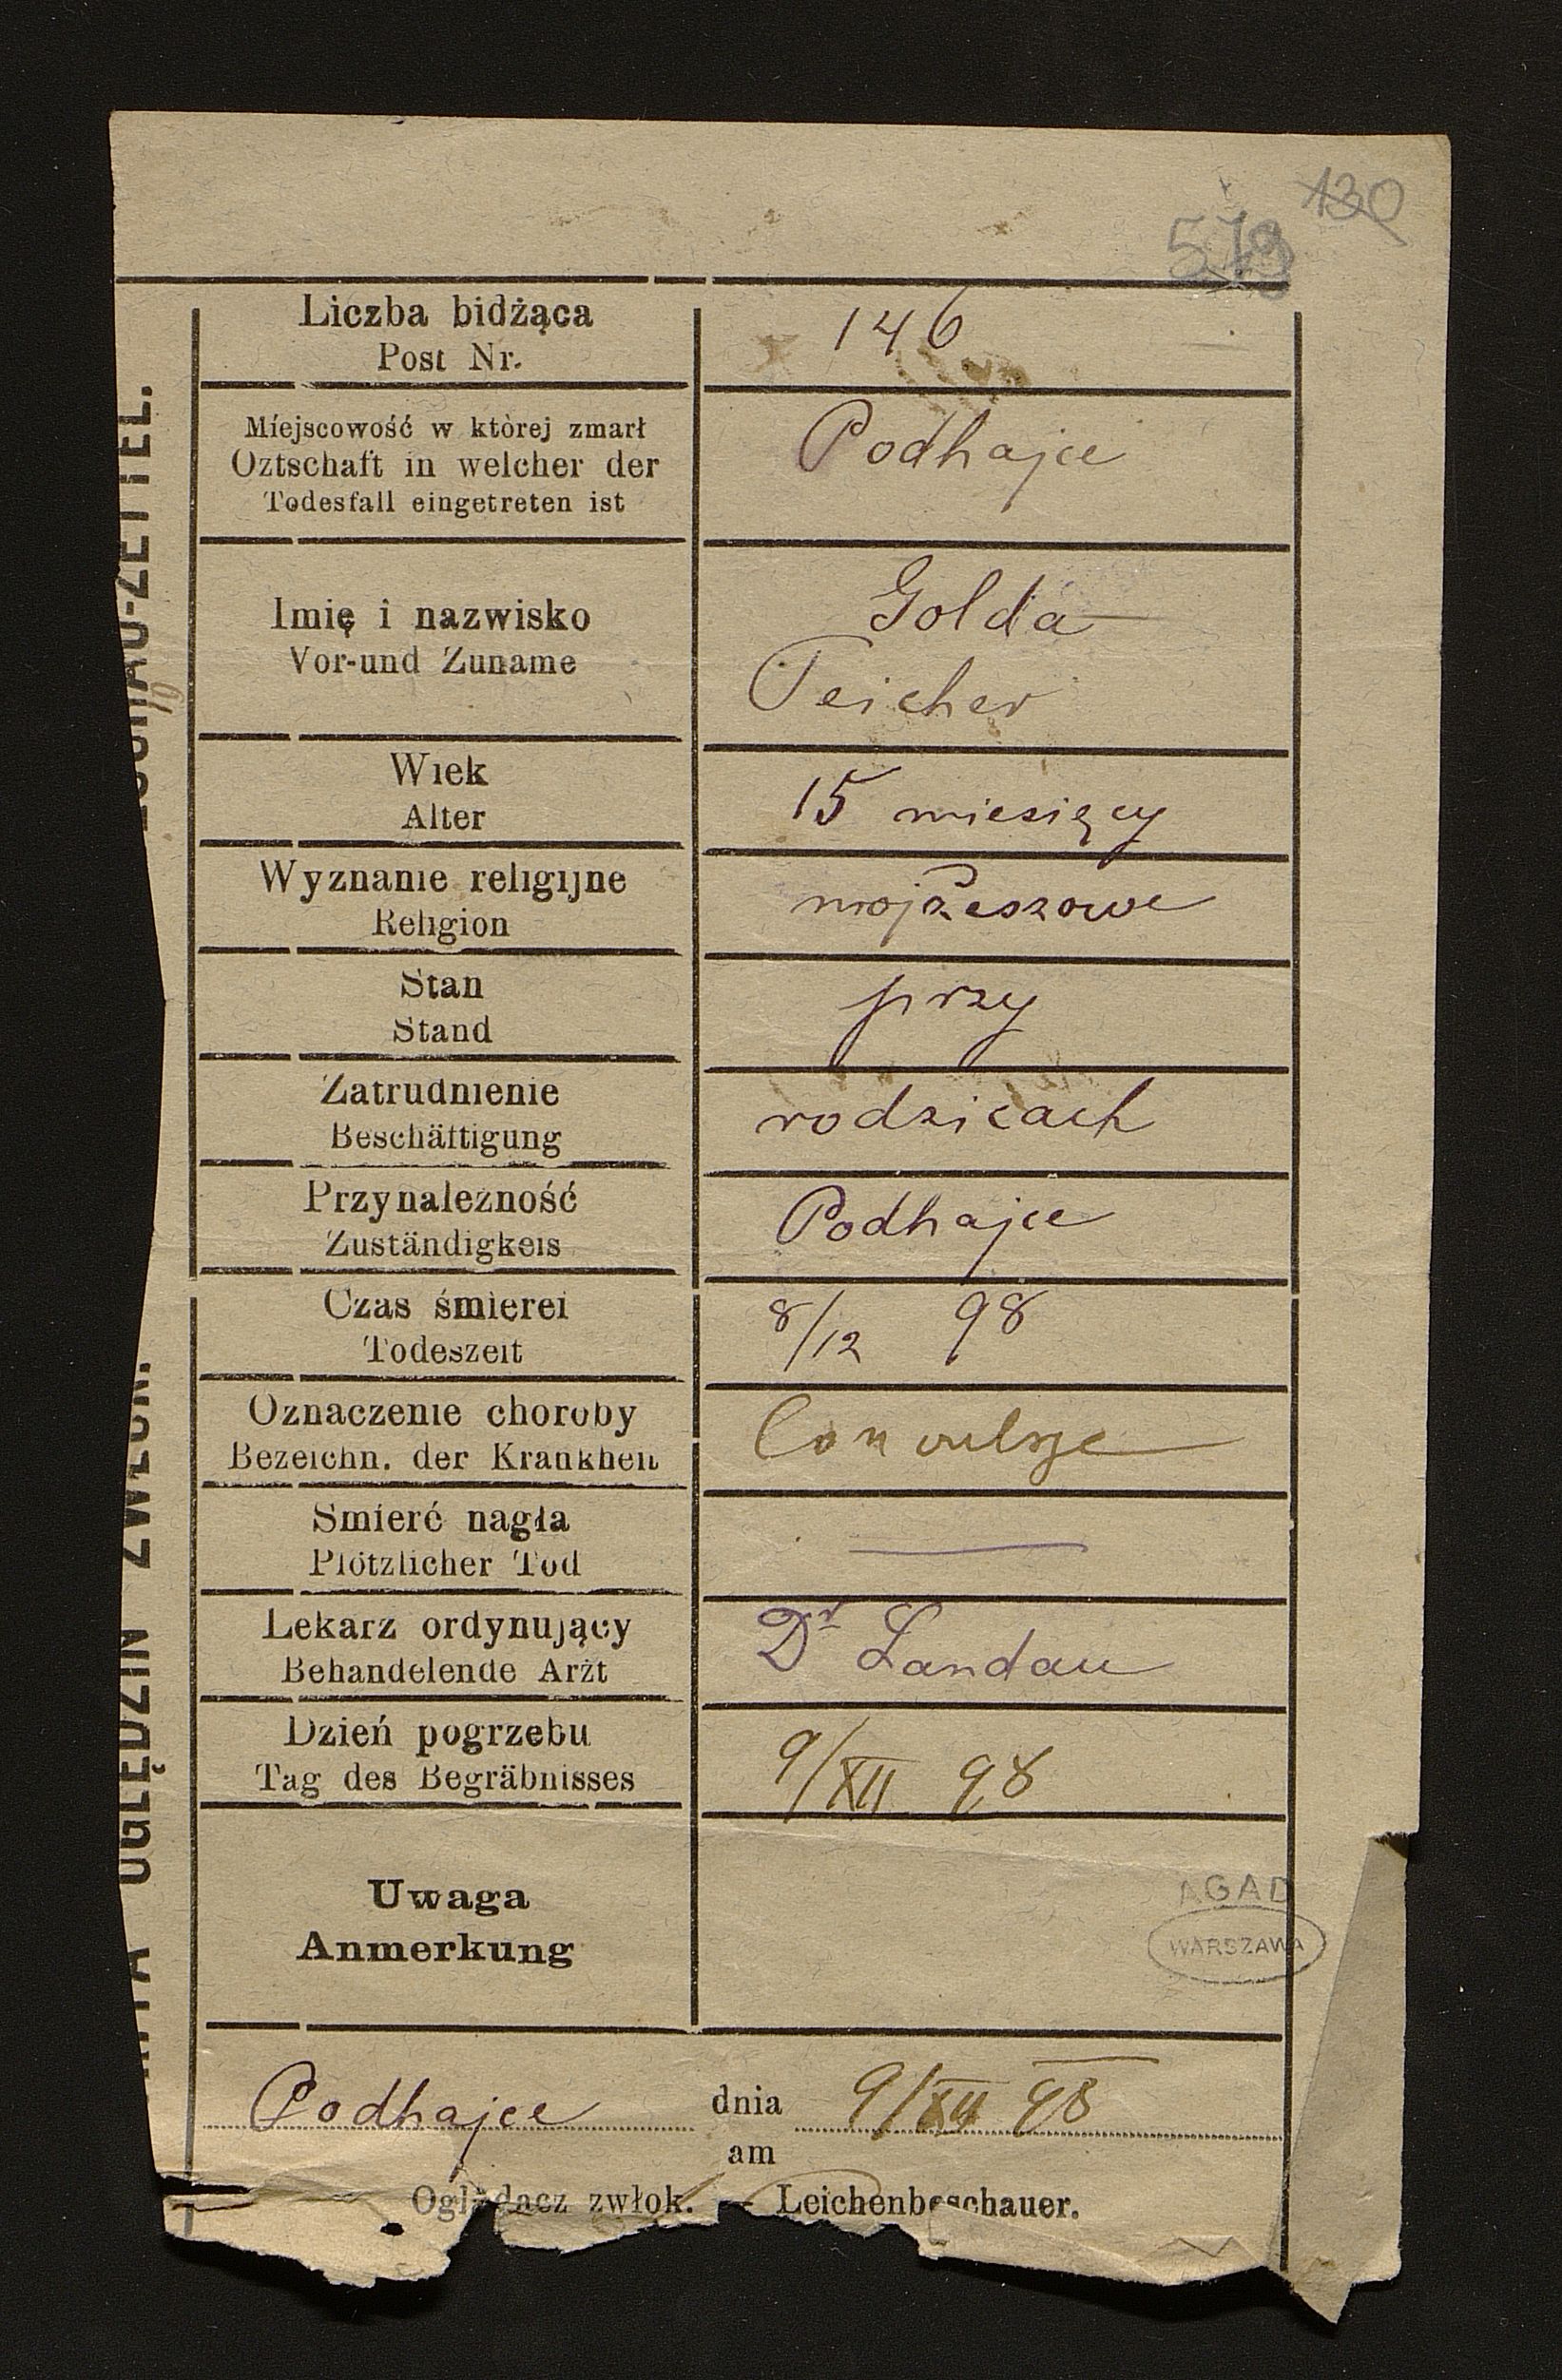 130
Liczba bidżąca
Post Nr.
146
Miejscowość w której zmarł
Oztschaft in welcher der
Todesfall eingetreten ist
Podhajce
Imię i nazwisko
Vor-und Zuname
Golda
Teicher
Wiek
Alter
15 miesięcy
Wyznanie religijne
Religion
mojżeszowe
Stan
Stand
przy
Zatrudnienie
Beschäftigung
rodzicach
Przynależność
Zuständigkeis
Podhajce
Czas śmierei
Todeszeit
8/12 98
Oznaczenie choroby
Bezeichn. der Krankheit
Convulsje
Smierć nagła
Plötzlicher Tod
Lekarz ordynujący
Behandelende Arzt
Dr Landau
Dzień pogrzebu
Tag des Begräbnisses
9/XII 98
Uwaga
Anmerkung
AGAD
WARSZAWA
Podhajce dnia 9/XII 98
am
Oglądacz zwłok. — Leichenbeschauer.
OGLĘDZIN ZWŁOK.